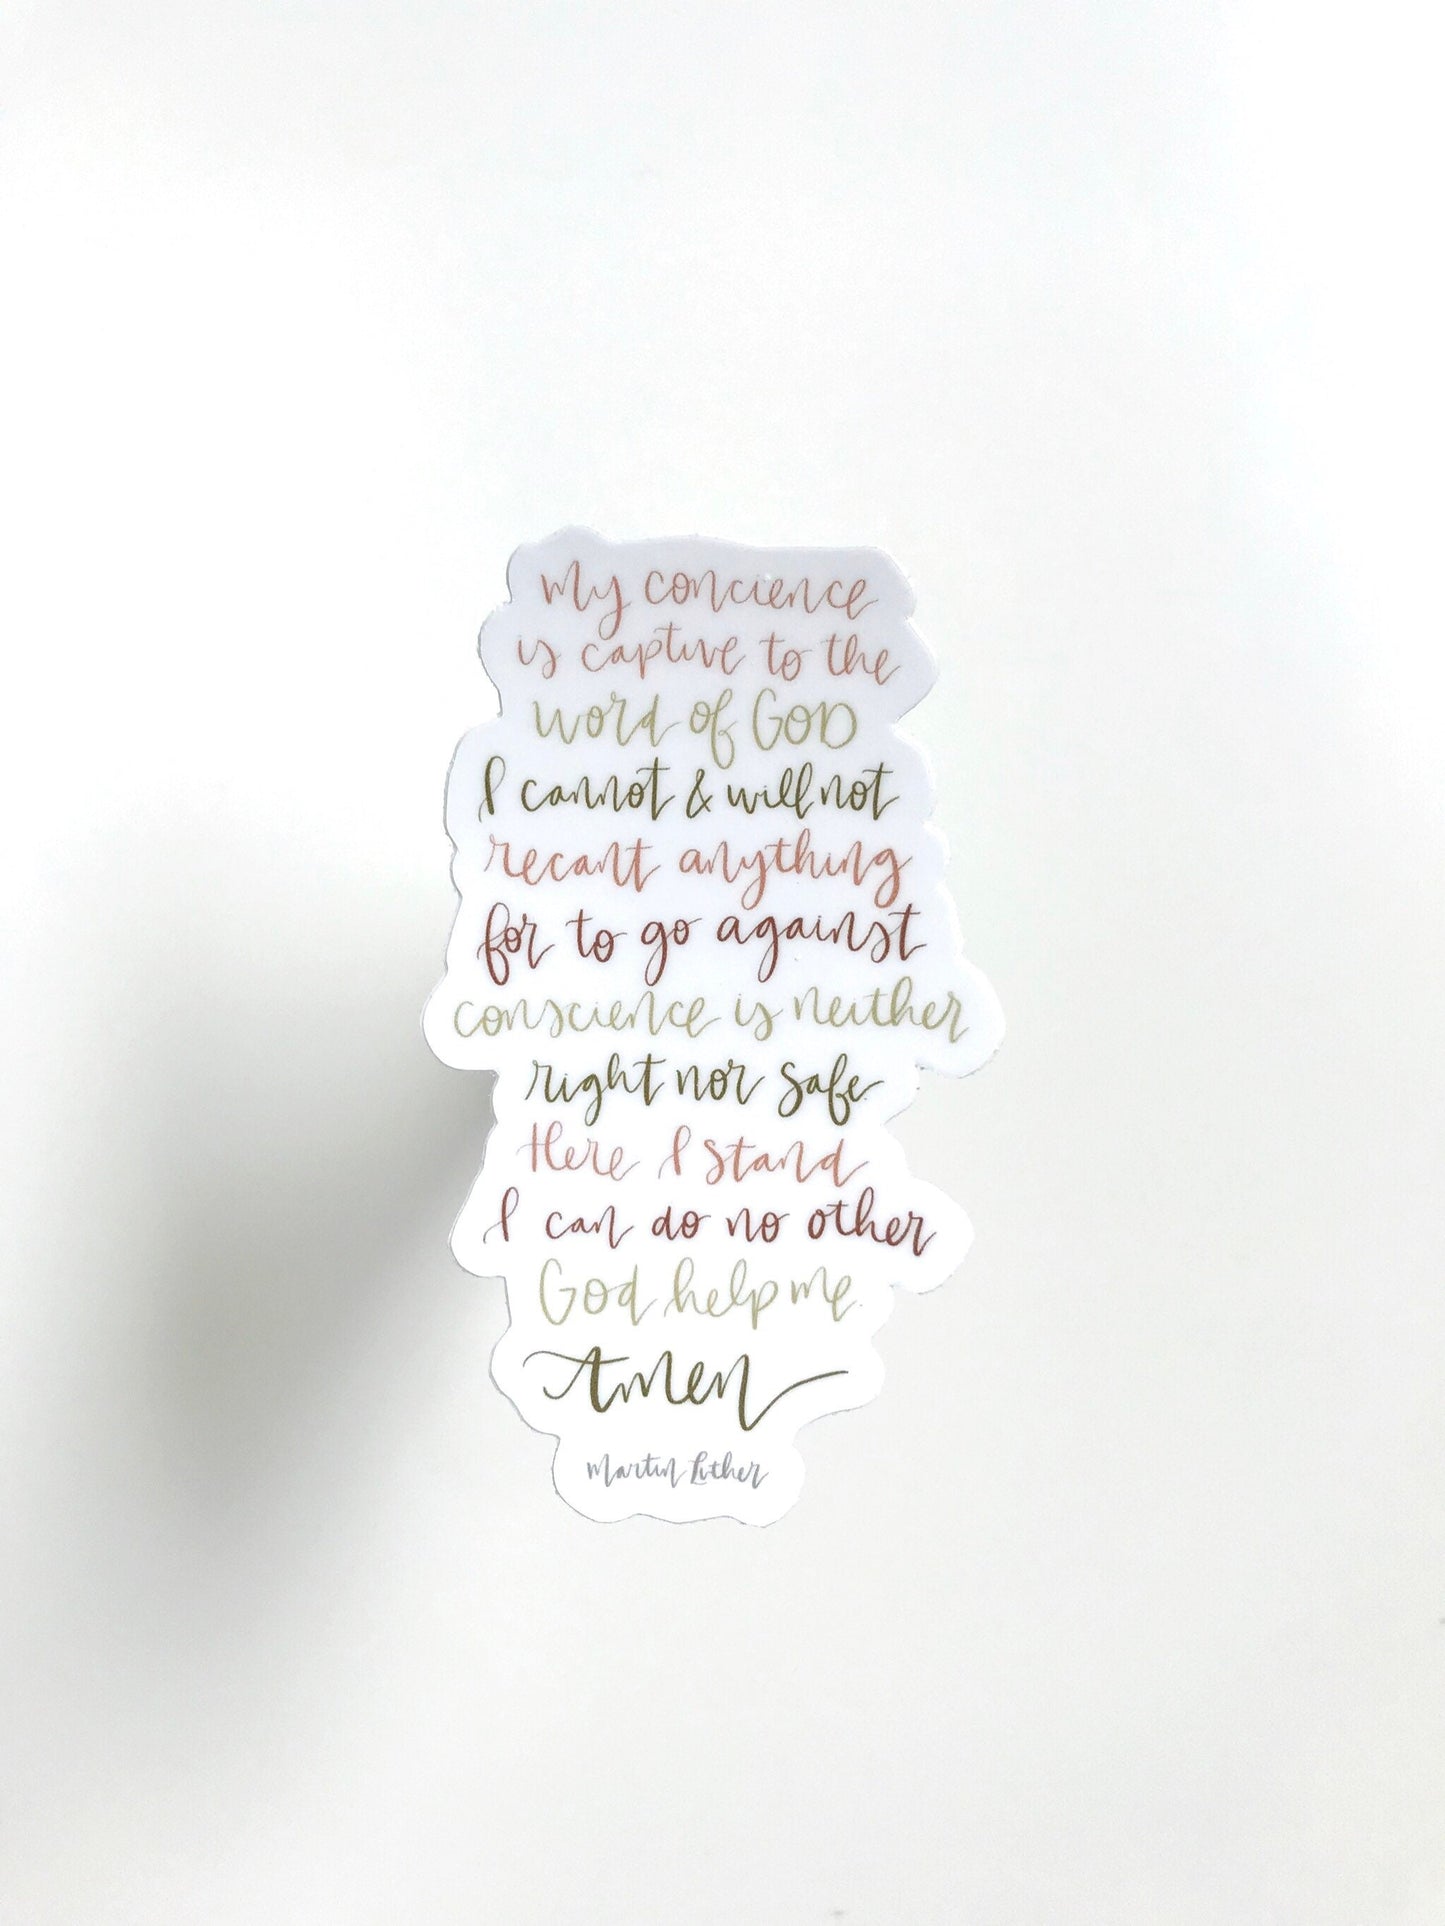 my concience
is captive to the
word of GOD
I cannot & will not
recant anything
for to go against
conscience is neither
right nor safe.
Here I stand
I can do no other
God help me.
Amen
Martin Luther